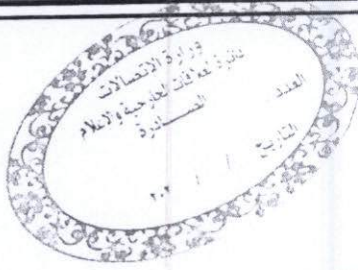 وزارة الاتصالات
دائرة العلاقات الخارجية والاعلام
الصادرة
العدد
التاريخ / / ٢٠٢